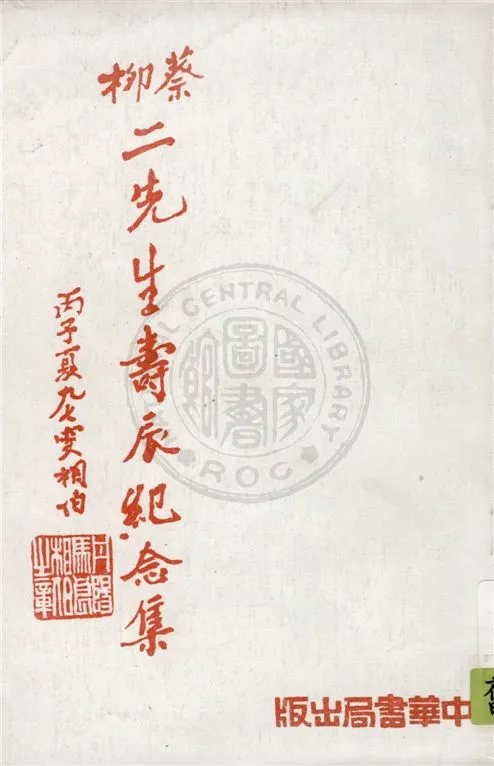 蔡柳二先生壽辰紀念集
丙子夏九七叟相伯
丹陽馬良相伯之章
中華書局出版
國家圖書館
NATIONAL CENTRAL LIBRARY
ROC